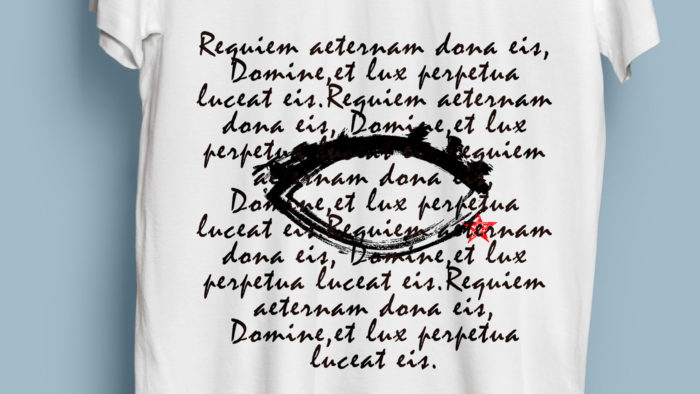 Requiem aeternam dona eis,
Domine,et lux perpetua
luceat eis.Requiem aeternam
dona eis, Domine,et lux
perpetua luceat eis.Requiem
aeternam dona eis,
Domine,et lux perpetua
luceat eis.Requiem aeternam
dona eis, Domine,et lux
perpetua luceat eis.Requiem
aeternam dona eis,
Domine,et lux perpetua
luceat eis.